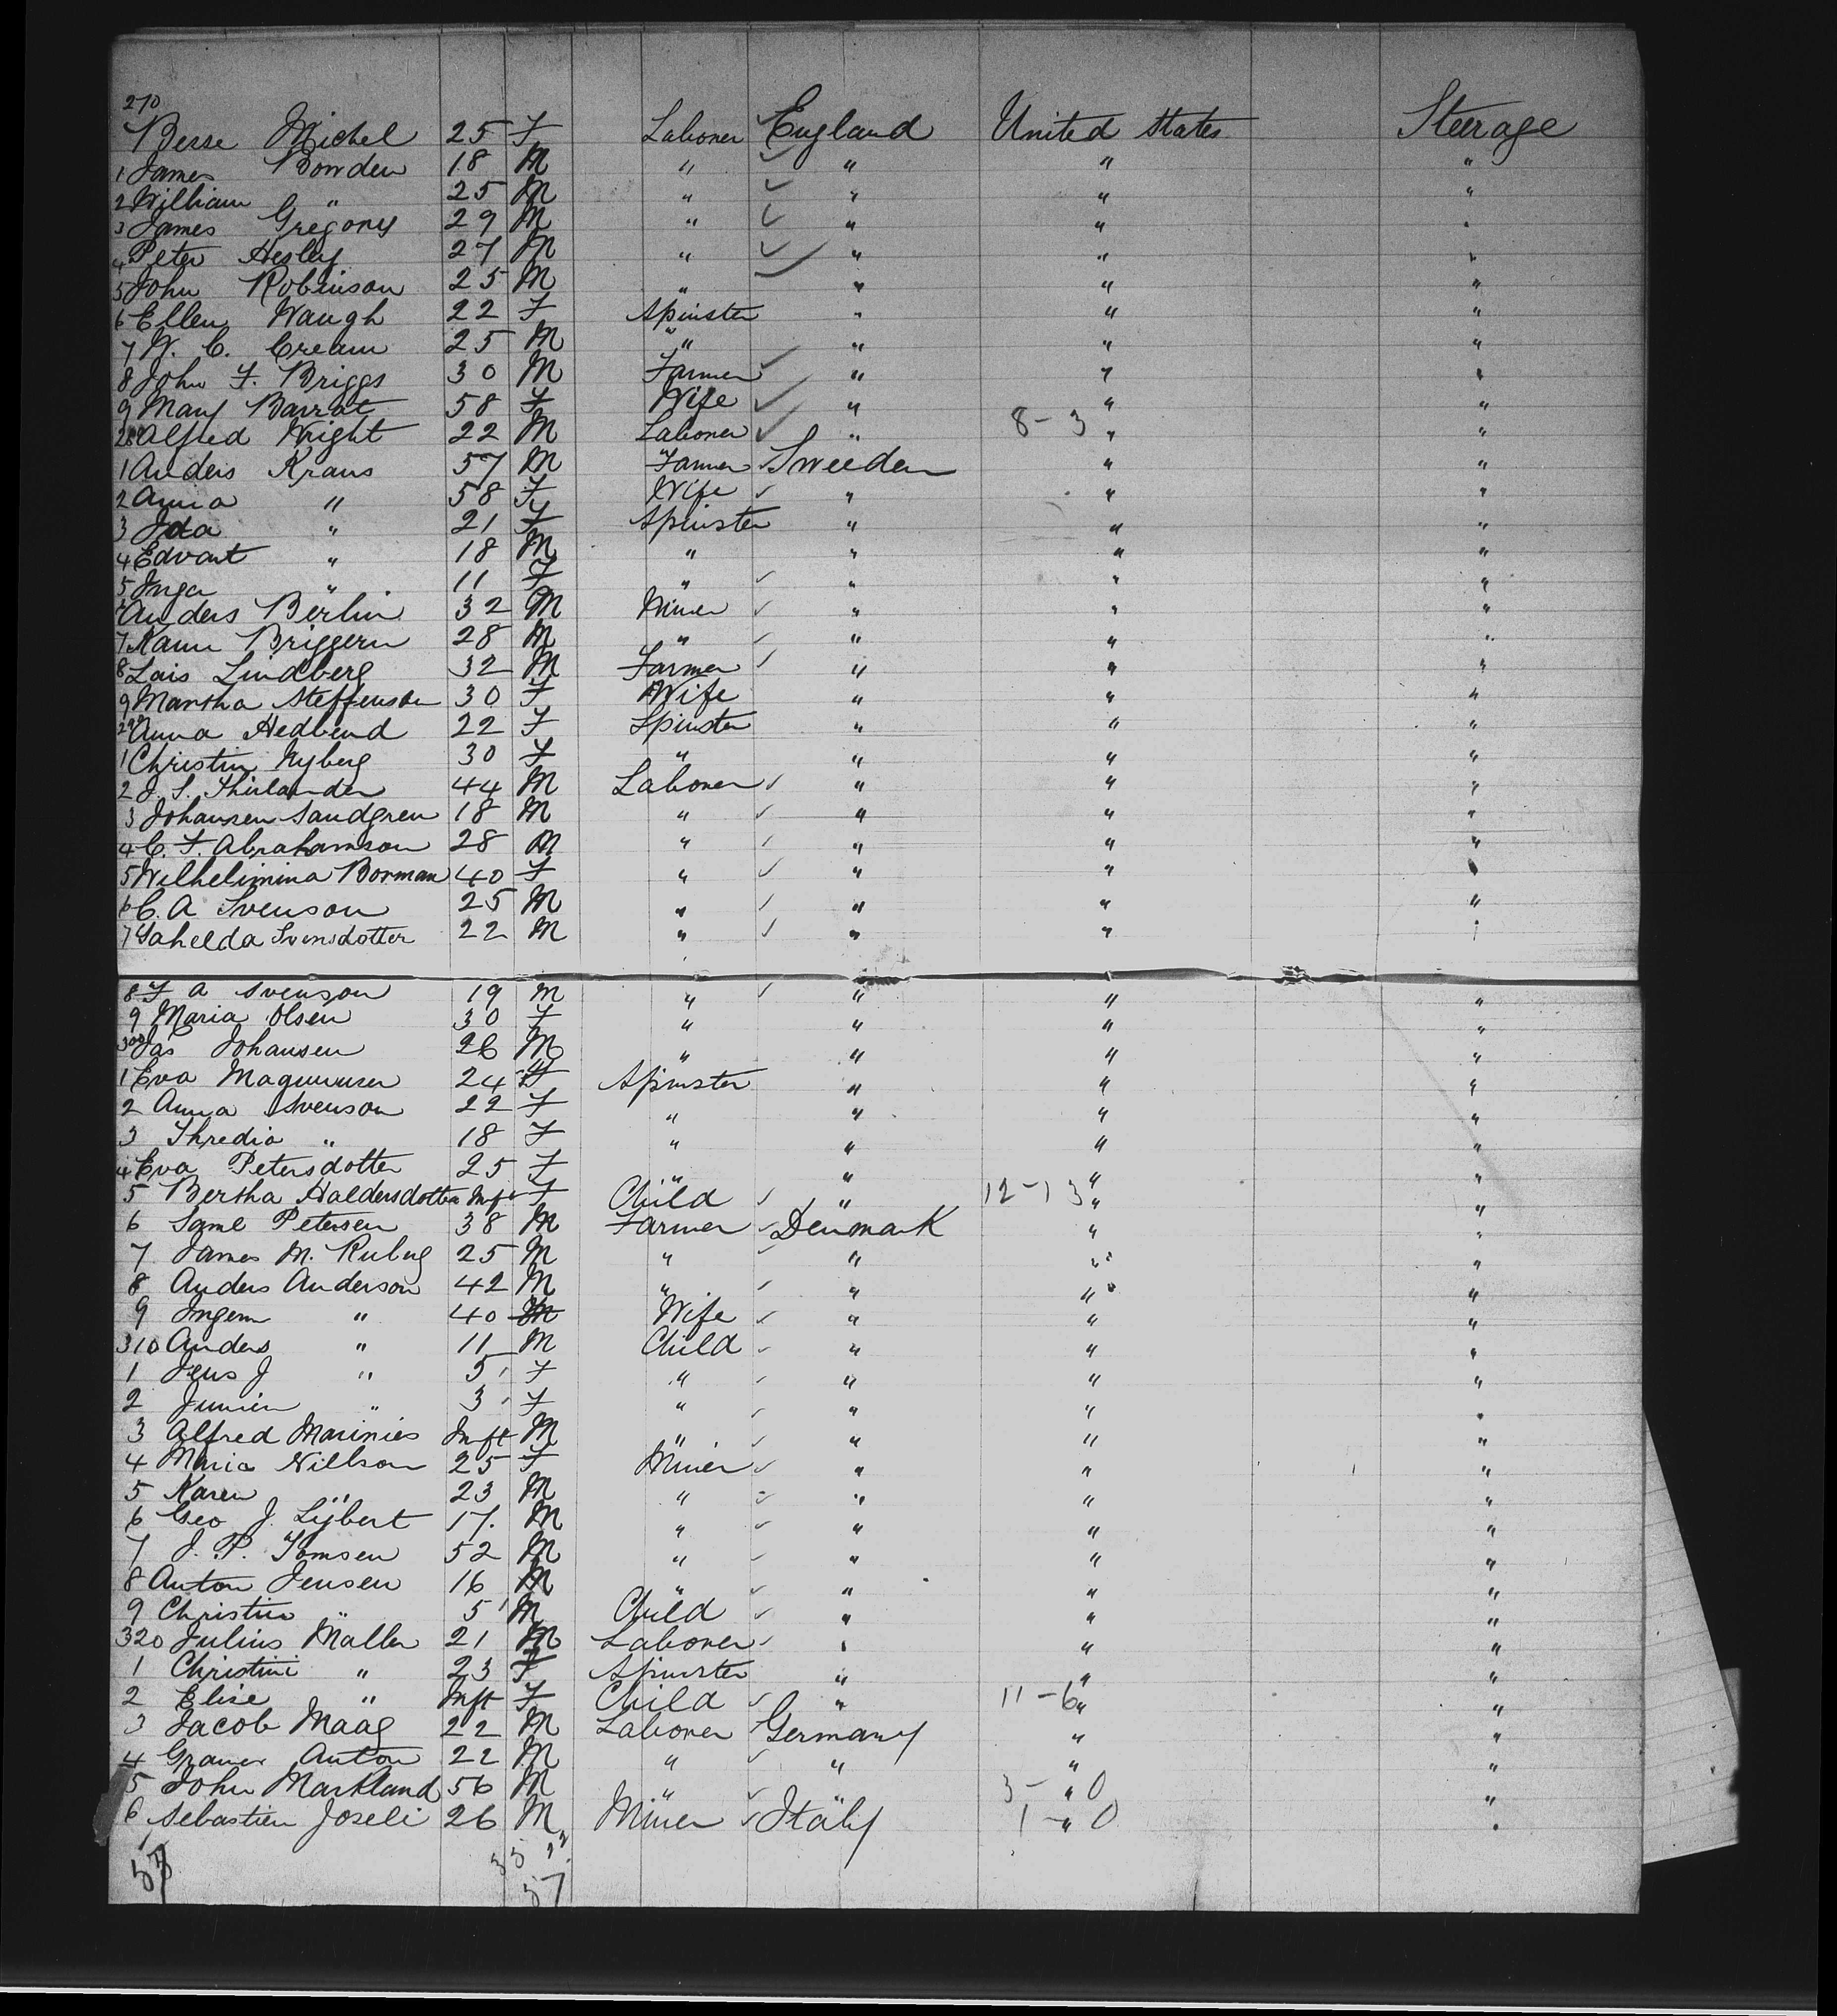 270
Besse Michel 25 F Laborer England United States Steerage
1 James Bowden 18 M " " " "
2 William " 25 M " " " "
3 James Gregory 29 M " " " "
4 Peter Hesley 27 M " " " "
5 John Robinson 25 M " " " "
6 Ellen Waugh 22 F Spinster " " "
7 W. C. Cream 25 M " " " "
8 John F. Briggs 30 M Farmer " " "
9 Mary Barrat 58 F Wife " " "
280 Alfred Wright 22 M Laborer " 8-3 " "
1 Anders Kraus 57 M Farmer Sweeden " "
2 Anna " 58 F Wife " " "
3 Ida " 21 F Spinster " " "
4 Edvart " 18 M " " " "
5 Inga " 11 F " " " "
Anders Berlin 32 M Miner " " "
7 Briggern 28 M " " " "
8 Lais Lindberg 32 M Farmer " " "
9 Martha Steffenson 30 F Wife " " "
290 Anna Hedbend 22 F Spinster " " "
1 Christin Nyberg 30 F " " " "
2 J. S. 44 M Laborer " " "
3 Johansen Sandgren 18 M " " " "
4 C. F. Abrahamson 28 M " " " "
5 Wilhelimina Borman 40 F " " " "
6 C. A Svenson 25 M " " " "
7 Svensdotter 22 M " " " "
8 F A Svenson 19 M " " " "
9 Maria Olsen 30 F " " " "
300 Jas Johansen 26 M " " " "
1 Eva 24 F Spinster " " "
2 Anna Svenson 22 F " " " "
3 Thredia " 18 F " " " "
4 Eva Petersdotter 25 F " " " "
5 Bertha Haldersdotter Inft F Child " 12-13 " "
6 Saml Petersen 38 M Farmer Denmark " "
7 James M. Ruberg 25 M " " " "
8 Anders Anderson 42 M " " " "
9 Ingem " 40 M Wife " " "
310 Anders " 11 M Child " " "
1 Jens J " 5 F " " " "
2 " 3 F " " " "
3 Alfred Marinies Inft M " " " "
4 Maria Nillson 25 F Miner " " "
5 Karen " 23 M " " " "
6 Geo J. Lijbert 17. M " " " "
7 J. P. Tomsen 52 M " " " "
8 Anton Jensen 16 M " " " "
9 Christin " 5 M Child " " "
320 Julius Maller 21 M Laborer " " "
1 Christini " 23 F Spinster " " "
2 Elise " Inft F Child " 11-6 " "
3 Jacob Maag 22 M Laborer Germany " "
4 Anton 22 M " " " "
5 John Markland 56 M " " 3-0 " "
6 Sebastien Joseli 26 M Miner Italy 1-0 " "
57